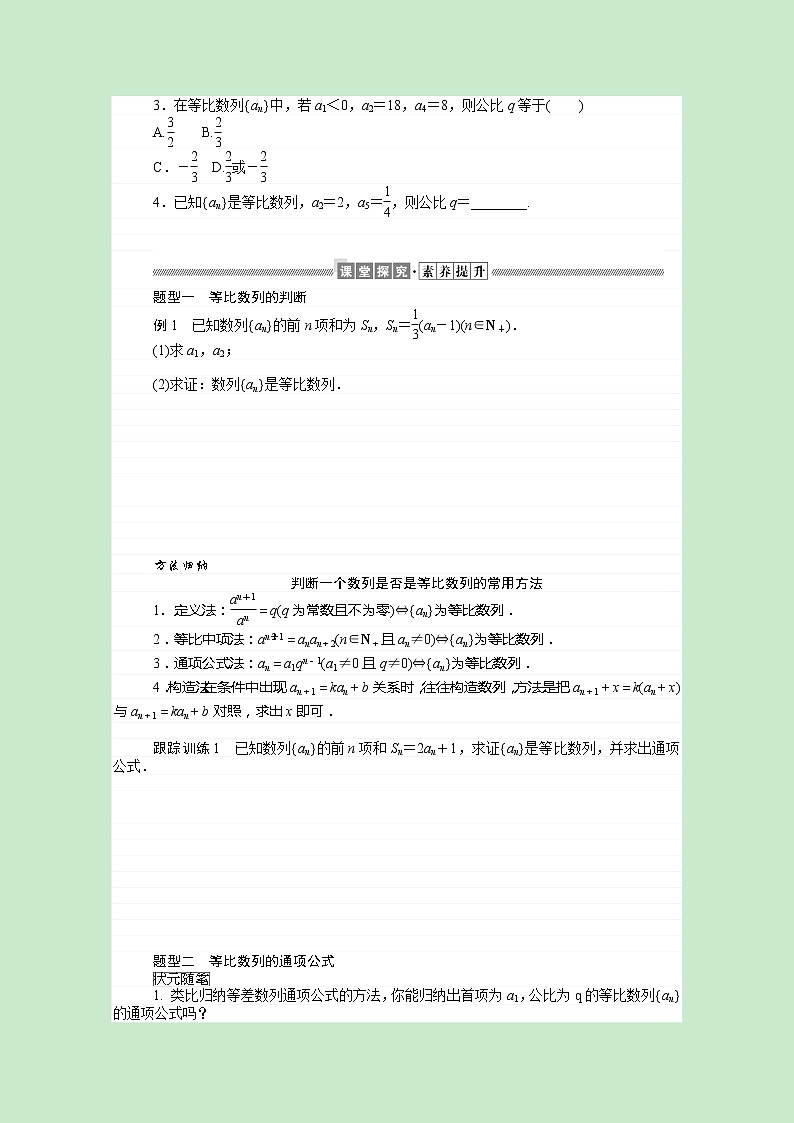 3．在等比数列{aₙ}中，若 a₁＜0，a₂＝18，a₄＝8，则公比 q 等于(　　)
A.3/2　　B.2/3
C．－2/3　D.2/3或－2/3
4．已知{aₙ}是等比数列，a₂＝2，a₅＝1/4，则公比 q＝________.
课堂探究·素养提升
题型一　等比数列的判断
例 1　已知数列{aₙ}的前 n 项和为 Sₙ，Sₙ＝1/3(aₙ－1)(n∈N₊)．
(1)求 a₁，a₂；
(2)求证：数列{aₙ}是等比数列．
方法归纳
判断一个数列是否是等比数列的常用方法
1．定义法：an＋1/an＝q(q 为常数且不为零)⇔{aₙ}为等比数列．
2．等比中项法：a²ₙ₊₁＝aₙaₙ₊₂(n∈N₊且 aₙ≠0)⇔{aₙ}为等比数列．
3．通项公式法：aₙ＝a₁qⁿ⁻¹(a₁≠0 且 q≠0)⇔{aₙ}为等比数列．
4．构造法：在条件中出现 aₙ₊₁＝kaₙ＋b 关系时，往往构造数列，方法是把 aₙ₊₁＋x＝k(aₙ＋x)
与 aₙ₊₁＝kaₙ＋b 对照，求出 x 即可．
跟踪训练 1　已知数列{aₙ}的前 n 项和 Sₙ＝2aₙ＋1，求证{aₙ}是等比数列，并求出通项
公式．
题型二　等比数列的通项公式
状元随笔
1. 类比归纳等差数列通项公式的方法，你能归纳出首项为 a₁，公比为 q 的等比数列{aₙ}
的通项公式吗？